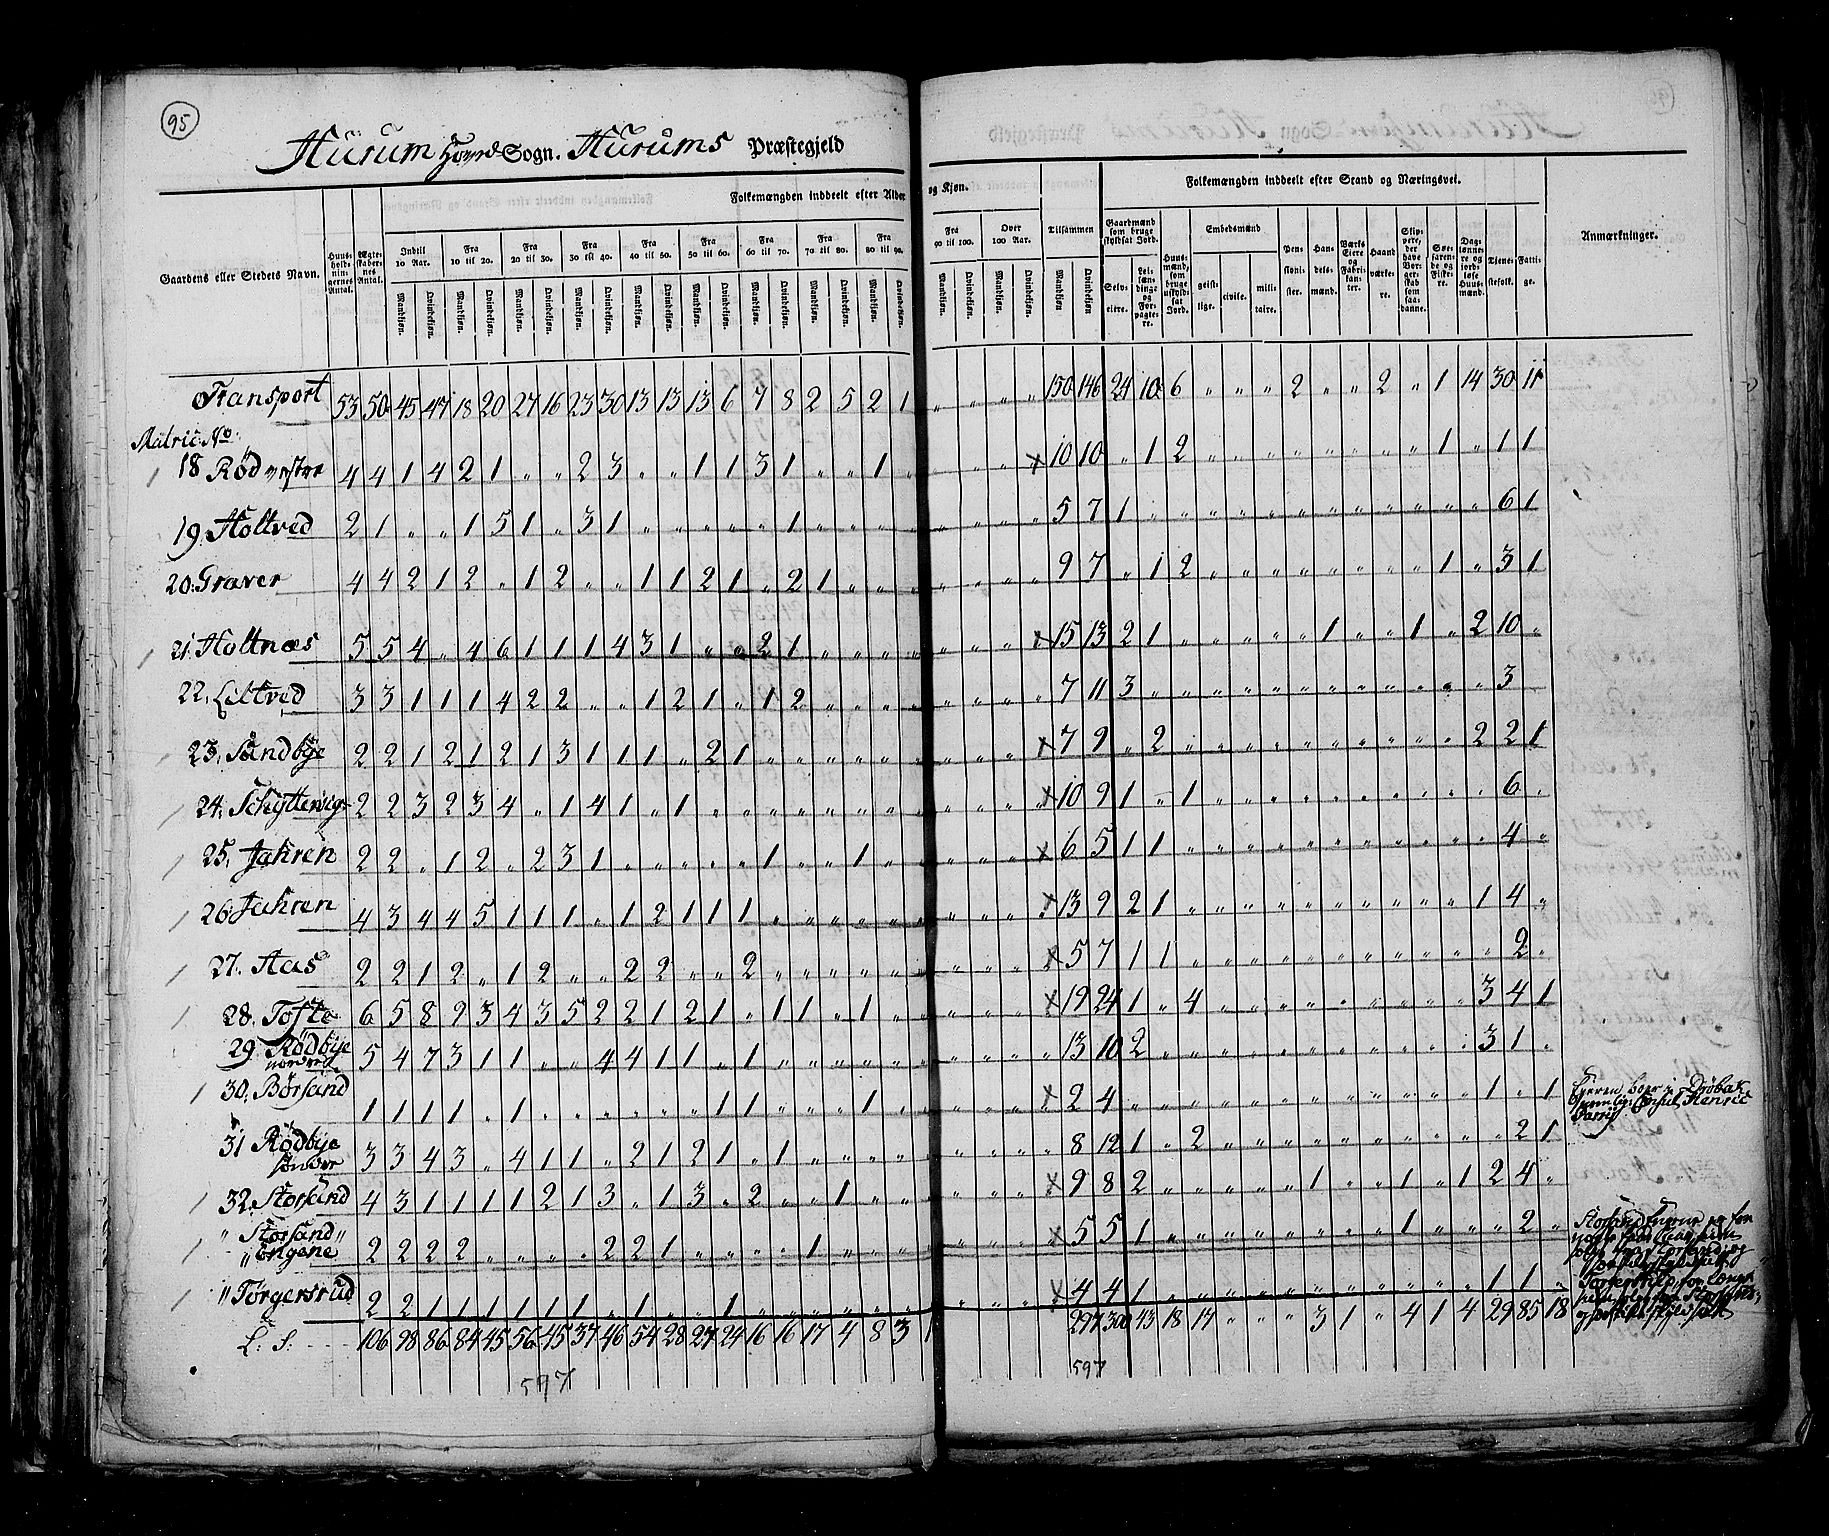 95
Hurum Hoved Sogn. Hurums Præstegjeld
Folkemængden inddeelt efter Alder og Kjøn.
Folkemængden inddeelt efter Stand og Næringsvei.
Gaardens eller Stedets Navn.
Huusholdningernes Antal.
Ægteskabernes Antal.
Indtil 10 Aar.
Fra 10 til 20.
Fra 20 til 30.
Fra 30 til 40.
Fra 40 til 50.
Fra 50 til 60.
Fra 60 til 70.
Fra 70 til 80.
Fra 80 til 90.
Fra 90 til 100.
Over 100 Aar.
Tilsammen
Mandkjøn. Qvindekjøn.
Gaardmænd som bruge skyldsat Jord.
Selveiere.
Leilændinge og Forpagtere.
Huusmænd, som bruge uskyldsat Jord.
Embedsmænd
geistlige. civile. militaire.
Pensionister.
Handelsmænd.
Værks Eiere og Fabrikanter.
Haandværkere.
Skippere, der have Borgerskab som saadanne.
Søefarende og Fiskere.
Dagslønnere og jordløse Huusmænd.
Tienestefolk.
Fattige.
Anmærkninger.
Transport 53 50 45 47 18 20 27 16 23 30 13 13 13 6 7 8 2 5 2 1 " " " " 150 146 24 10 6 " " " 2 " " 2 " 1 14 30 11
Matric: No:
18 Rød vestre 4 4 1 4 2 1 " " 2 3 " " 1 1 3 1 " " 1 " " " " x 10 10 " 1 2 " " " " " " " " 1 " 1 1
19. Holtved 2 1 " " 1 5 1 " 3 1 " " " " " 1 " " " " " " " " 5 7 1 " " " " " " " " " " " " 6 1
20. Graver 4 4 2 1 2 " 1 2 " " 1 1 2 1 " 2 1 " " " " " " " 9 7 " 1 2 " " " " " " " " 1 " 3 1
21. Holtnæs 5 5 4 " 4 6 1 1 1 4 3 1 " " 2 1 " " " " " " " x 15 13 2 1 " " " " " 1 " " 1 " 2 10 "
22. Liltved 3 3 1 1 1 4 2 2 " " 1 2 1 " 1 2 " " " " " " " " 7 11 3 " " " " " " " " " " " " 3
23. Sandbye 2 2 1 2 1 2 1 3 1 1 1 " 2 1 " " " " " " " " " x 7 9 " 2 " " " " " " " " " " 2 2 1
24. Schyttervig 2 2 3 2 3 4 " 1 4 1 " 1 " " " " " " " " " " " x 10 9 1 " 1 " " " " " " " " " " 6 "
25. Jahren 2 2 " 1 2 " 2 3 1 " " " " " 1 " " 1 " " " " " x 6 5 1 1 " " " " " " " " " " " 4 "
26. Jahren 4 3 4 4 5 1 1 1 " 1 2 1 1 1 " " " " " " " " " x 13 9 2 1 " " " " " " " " " " 1 4 "
27. Aas 2 2 1 2 " 1 2 " " 2 2 " " 2 " " " " " " " " " x 5 7 1 1 " " " " " " " " " " " 2 "
28. Tofte 6 5 8 9 3 4 3 5 2 2 1 2 1 " 1 1 " 1 " " " " " x 19 24 1 " 4 " " " " " " " " " 3 4 1
29 Rødbye nordre 5 4 7 3 1 1 " " 4 4 1 1 " 1 " " " " " " " " " " 13 10 2 " " " " " " " " " " " 3 1 "
30. Børsand 1 1 1 1 " 1 " " " " " " 1 1 " " " 1 " " " " " x 2 4 " " " " " " " " " " " " 1 " 1
Eieren boer i Drøbak
nemlig Consul Henric
Carrig
31 Rødbye søndre 3 3 4 3 " 4 1 1 " 2 1 2 1 " 1 " " " " " " " " " 8 12 1 " 2 " " " " " " " " " " 2 1
32. Storsand 4 3 1 1 1 1 2 1 3 " 1 3 " 2 " " 1 " " " " " " x 9 8 2 " " " " " " 1 " " 1 " 1 2 4 "
" Storsand "
" Engene 2 2 2 2 " " " " 2 2 1 " " " " 1 " " " " " " " x 5 5 1 " " " " " " " " " 1 " " " 2 "
" Torgersrud 2 2 1 1 1 1 1 1 " 1 " " 1 " " " " " " " " " " x 4 4 1 " " " " " " " " " " " 1 1 "
L: S: 106 98 86 84 45 56 45 37 46 54 28 27 24 16 16 17 4 8 3 1 297 300 43 18 17 " " " 3 1 " 4 1 4 29 85 18
597
597